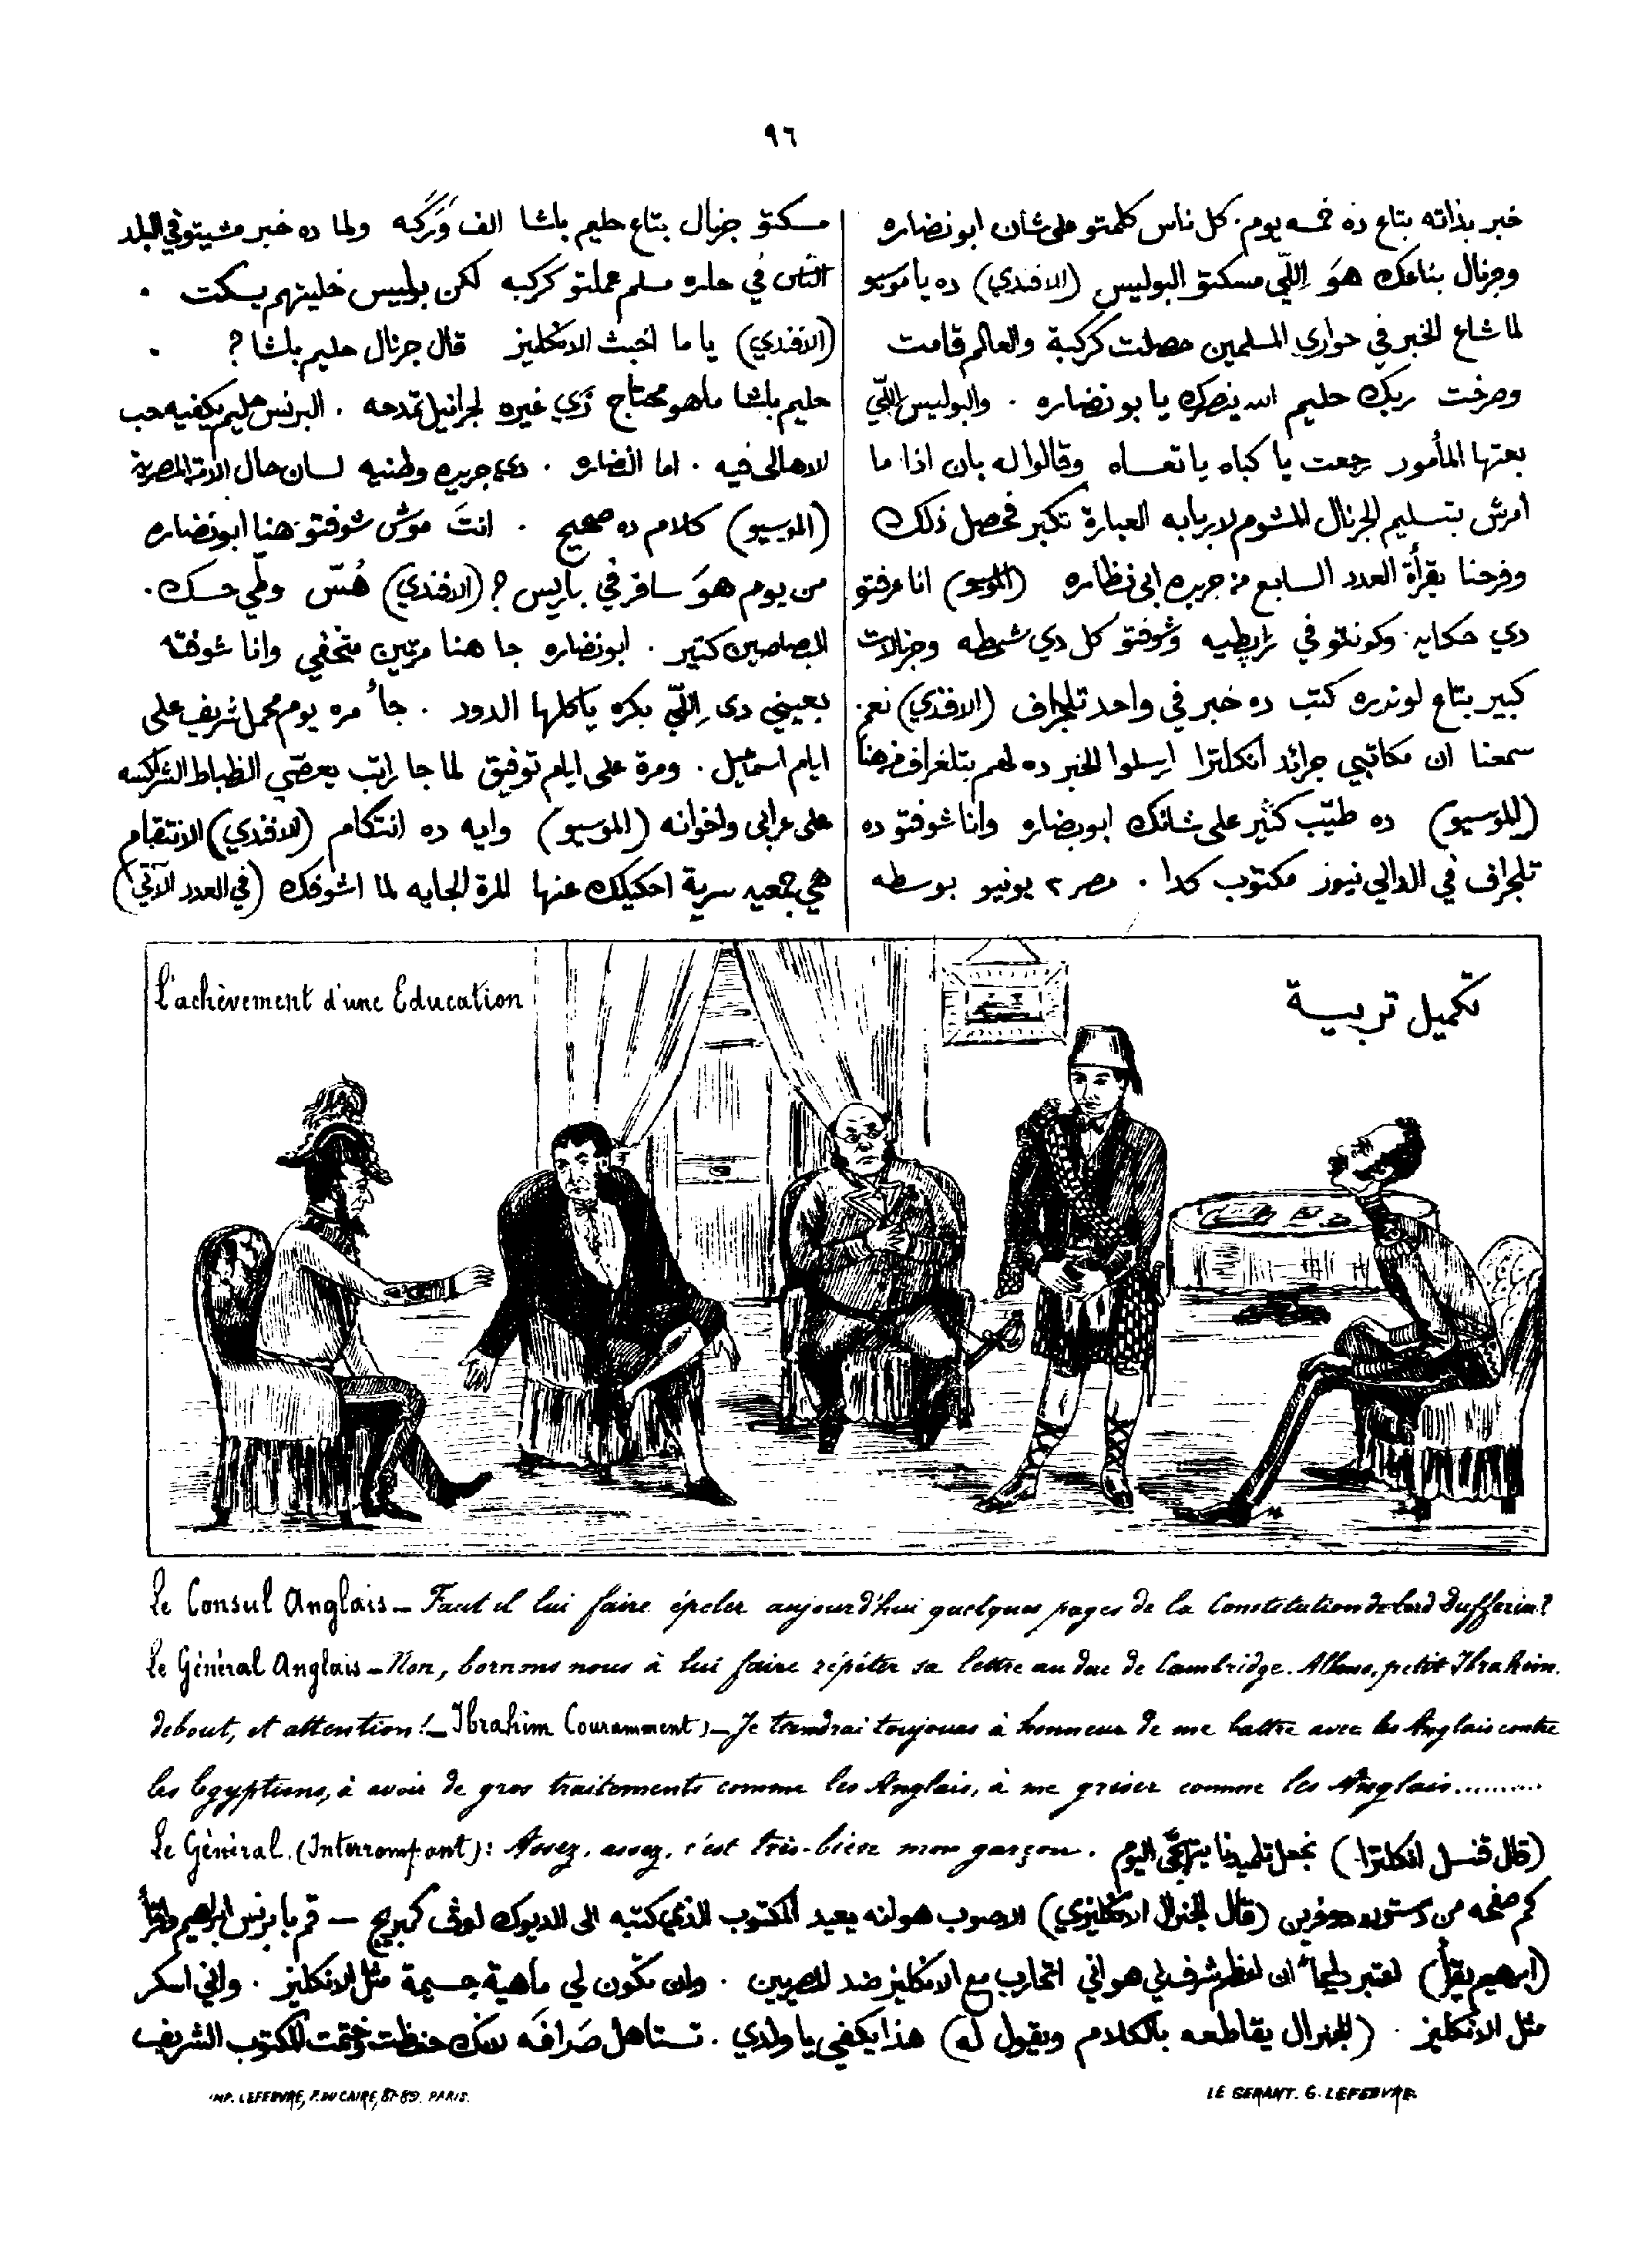 ٩٦
خبر بذاته بتاع ده خمسه يوم. كل ناس كلمتو على شان ابو نضاره
وجرنال بتاعك هوَ اللّي مسكتو البوليس (الافندي) ده يا موسيو
لما شاع الخبر في حواري المسلمين حصلت كركبة والعالم قامت
وصرخت ربك حليم الله ينصرك يا بو نضاره . والبوليس اللّي
بعتها المأمور رجعت يا كباه يا تعساه وقالوا له بان اذا ما
أمرش بتسليم الجرنال المشوم لاربابه العبارة تكبر فحصل ذلك
وفرحنا بقرأة العدد السابع من جريدة ابي نظاره (الموسيو) انا عرفتو
دي حكايه وكونتو في زابطيه وشوفتو كل دي شمطه وجرنالات
كبير بتاع لوندره كتب ده خبر في واحد تلجراف (الافندي) نعم.
سمعنا ان مكاتبي جرائد انكلترا ارسلوا الخبر ده لهم بتلغراف من هنا
(الموسيو) ده طيّب كثير على شانك ابو نضاره وانا شوفتو ده
تلجراف في الدالي نيوز مكتوب كدا . مصر ٢ يونيو بوسطه
مسكتو جرنال بتاع حليم باشا الف وَرَكَه ولما ده خبر مشيتو في البلد
الناس في حاره مسلم عملتو كركبه لكن بوليس خليتهم يسكت .
(الافندي) يا ما اخبث الانكليز قال جرنال حليم باشا ؟ .
حليم باشا ما هو محتاج زي غيره لجرانيل تمدحه . البرنس حليم يكفيه حب
الاهالى فيه . اما النضاره . دي جريده وطنيه لسان حال الامة المصرية
(الموسيو) كلام ده صحيح . انتَ موش شوفتو هنا ابو نضاره
من يوم هوَ سافر في باريس ؟ (الافندي) هُسّ وطّي حسك .
البصاصين كتير . ابو نضاره جا هنا مرتين متخفي وانا شوفته
بعيني دى اللّي بكره ياكلها الدود . جاء مره يوم محمل شريف على
ايام اسمعيل . ومرة على ايام توفيق لما جا راتب يعصّي الظباط الشراكسه
على عرابى واخوانه (الموسيو) وايه ده انتكام (الافندي) الانتقام
هي جمعيه سرية احكيلك عنها المرة الجايه لما اشوفك (في العدد الآتي)
L'achèvement d'une Education
تكميل تربية
Le Consul Anglais — Faut il lui faire épeler aujourd'hui quelques pages de la Constitution de Lord Dufferin?
Le Général Anglais — Non, bornons nous à lui faire répéter sa lettre au duc de Cambridge. Allons, petit Ibrahim.
debout, et attention! — Ibrahim Couramment) — Je tiendrai toujours à honneur de me battre avec les Anglais contre
les Egyptiens, à avoir de gros traitements comme les Anglais, à me griser comme les Anglais.........
Le Général. (Interrompant): Assez, assez, c'est très-bien mon garçon.
(قال قنسل انكلترا) نجعل تلميذنا يتهجّى اليوم
كم صفحه من دستور دوفرين (قال الجنرال الانكليزي) الاصوب هو انه يعيد المكتوب الذي كتبه الى الديوك اوف كمبريج — قم يا برنس ابراهيم واقرأ
(ابرهيم يقرأ) اعتبر دايماً ان اعظم شرف لي هو اني اتحارب مع الانكليز ضد المصريين . وان تكون لي ماهية جسيمة مثل الانكليز . واني اسكر
مثل الانكليز . (الجنرال يقاطعه بالكلام ويقول له) هذا يكفي يا ولدي . تستاهل صَرافَه لانك حفظت وختمت المكتوب الشريف
IMP. LEFEBVRE, P. DU CAIRE, 87-89. PARIS.
LE GERANT. G. LEFEBVRE.